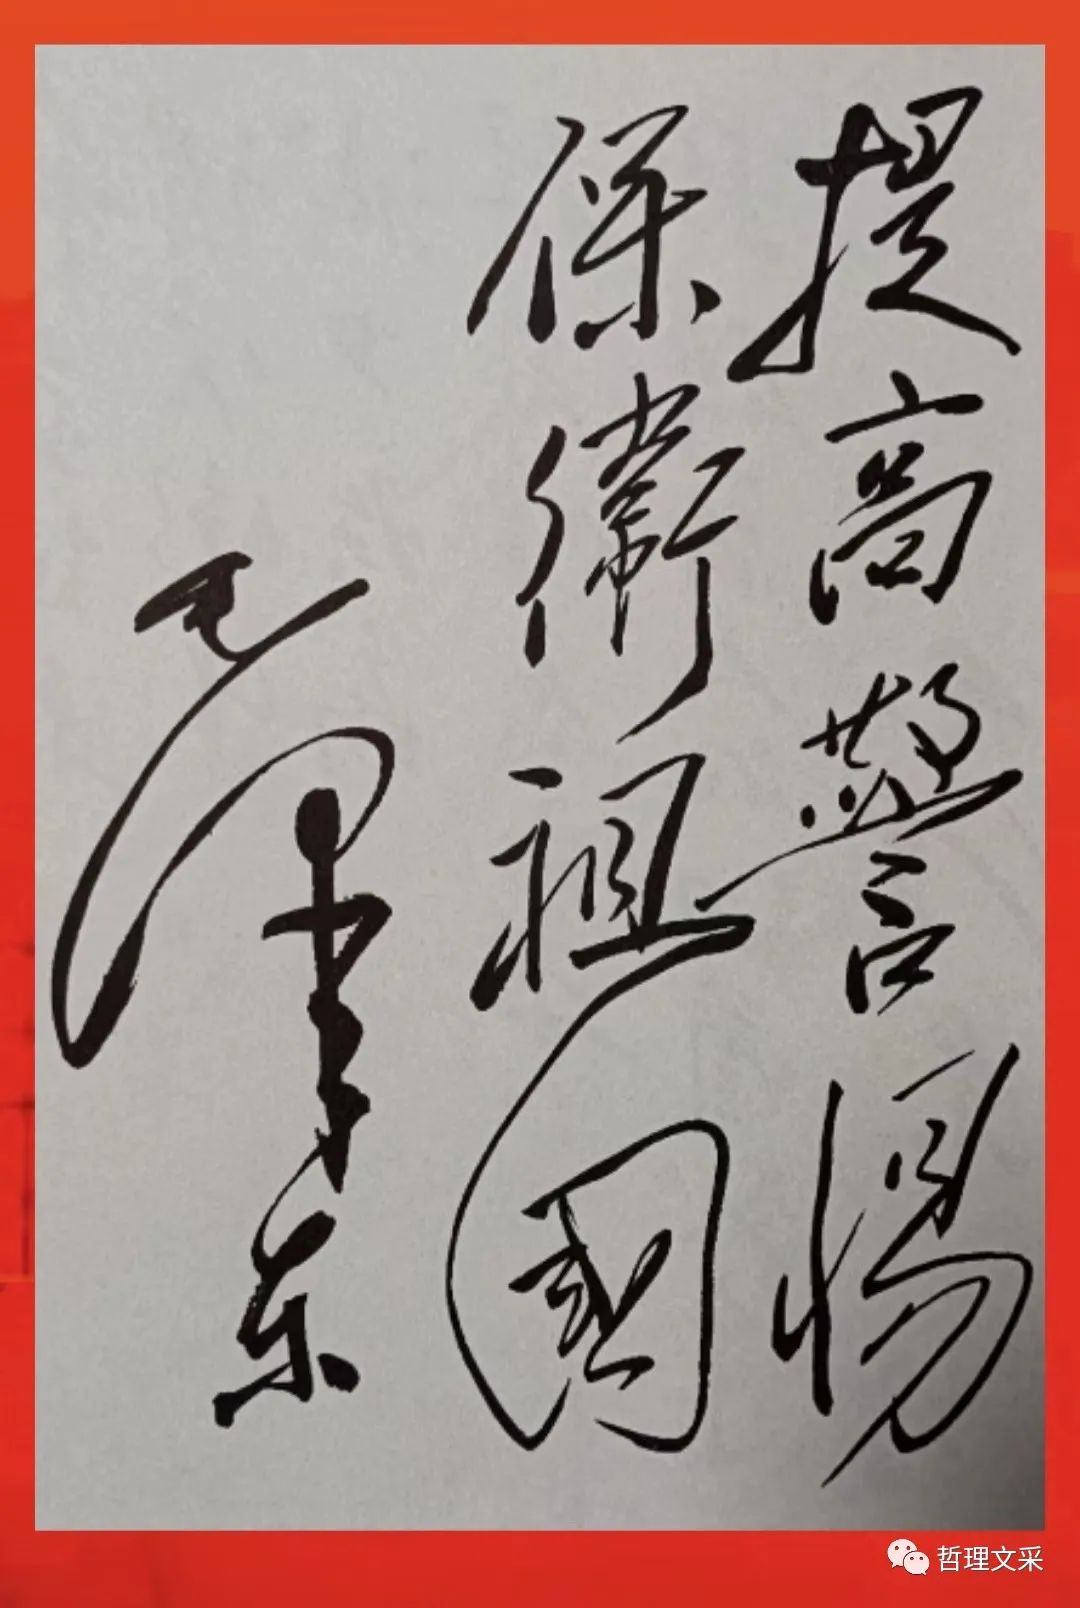 提高警惕
保衛祖國
毛澤东
哲理文采